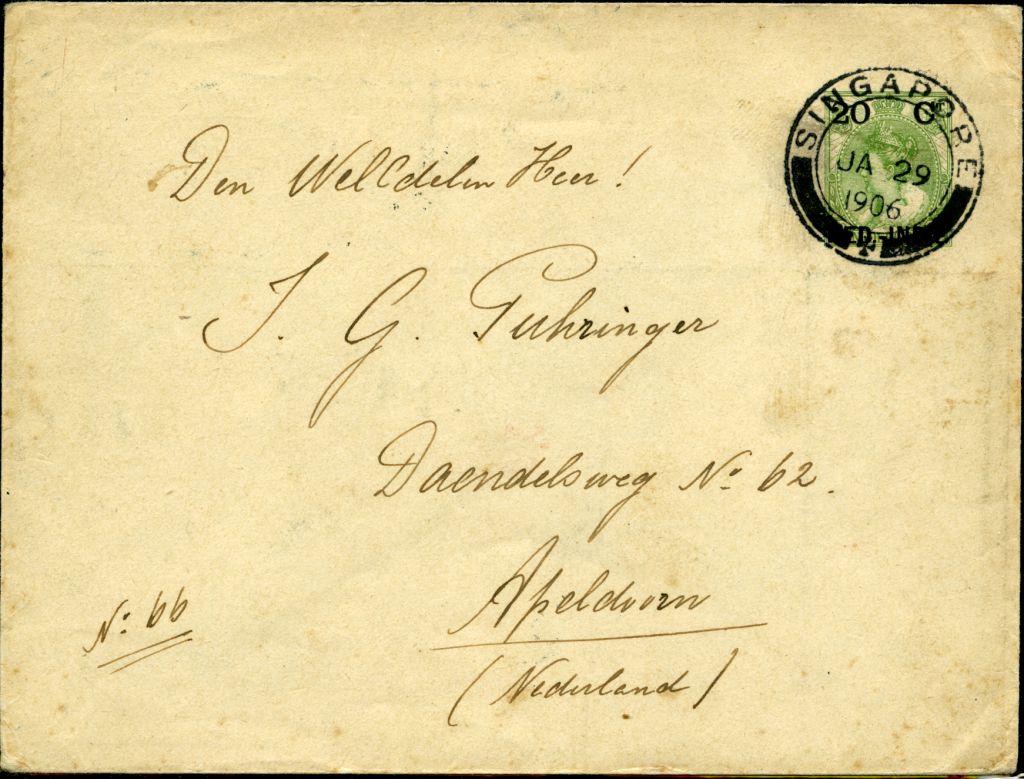 SINGAPORE
20 C
JA 29
1906
NED-IND
Den WelEdelen Heer!
J. G. Puhringer
Daendelsweg No 62.
Apeldoorn
(Nederland)
No 66